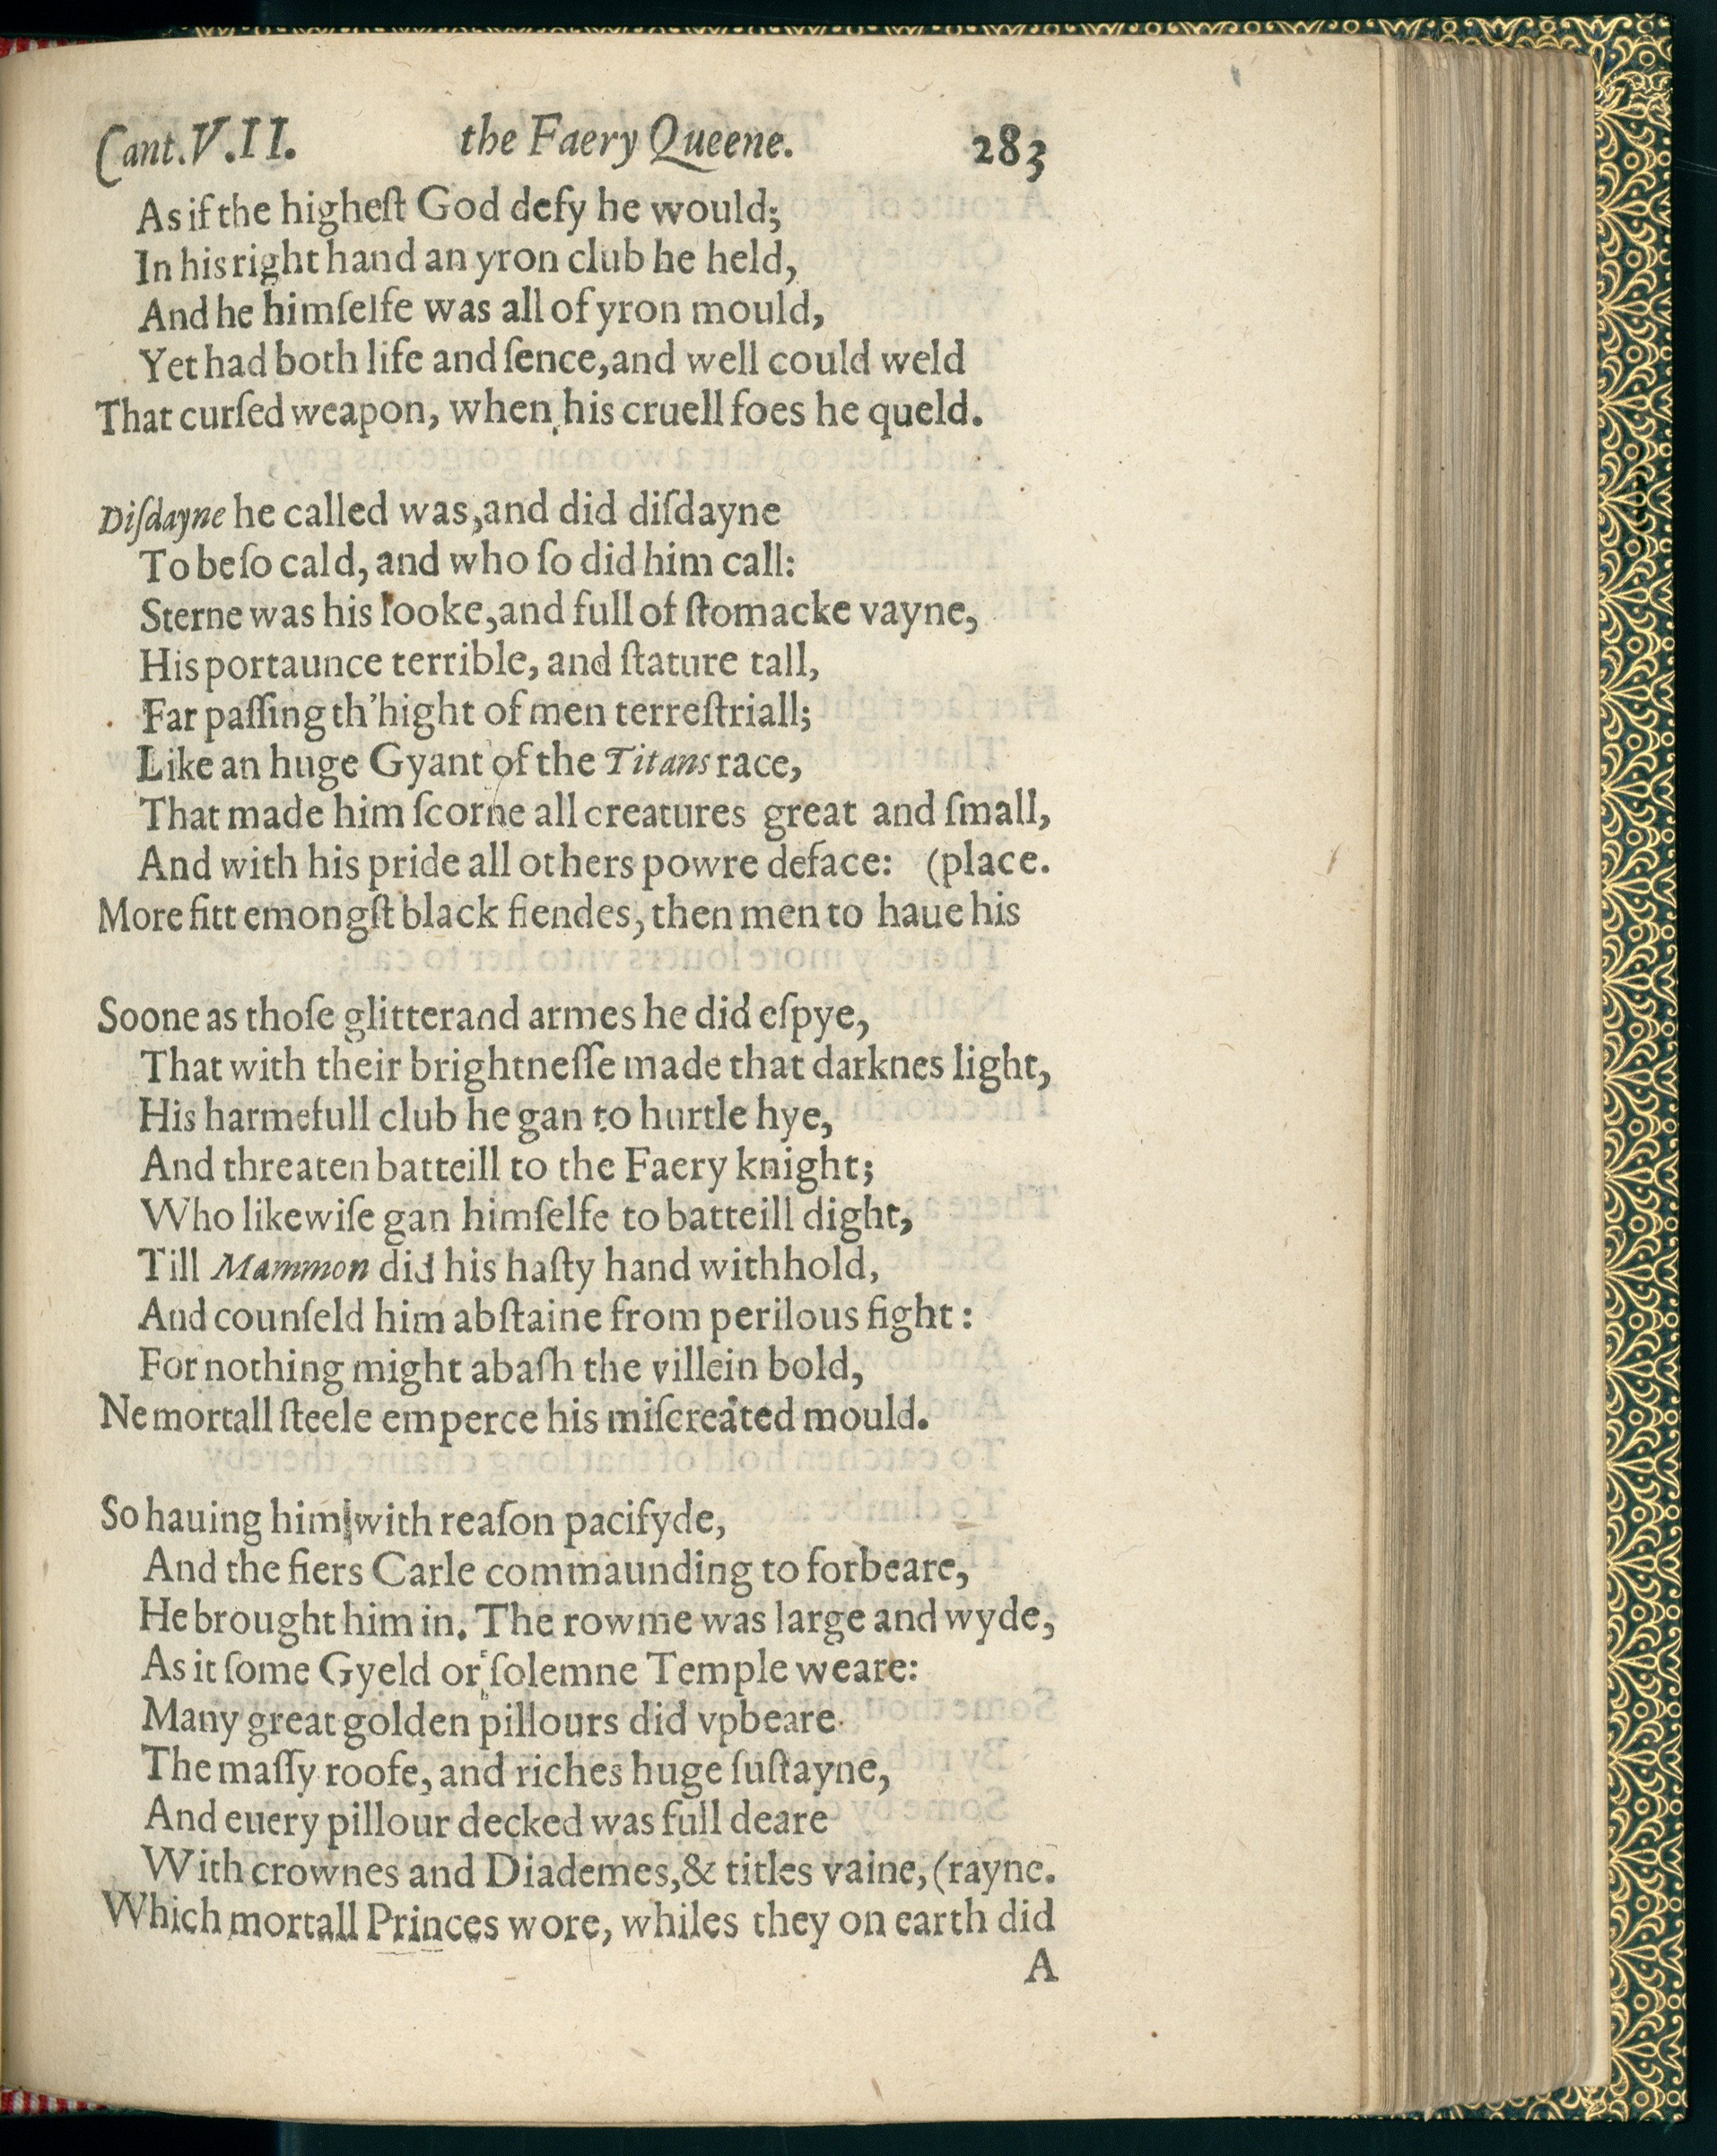 Cant.V.II. the Faery Queene. 283
As if the higheſt God defy he would;
In his right hand an yron club he held,
And he himſelfe was all of yron mould,
Yet had both life and ſence, and well could weld
That curſed weapon, when his cruell foes he queld.
Diſdayne he called was, and did diſdayne
To be ſo cald, and who ſo did him call:
Sterne was his looke, and full of ſtomacke vayne,
His portaunce terrible, and ſtature tall,
Far paſſing th'hight of men terreſtriall;
Like an huge Gyant of the Titans race,
That made him ſcorne all creatures great and ſmall,
And with his pride all others powre deface: (place.
More fitt emongſt black fiendes, then men to haue his
Soone as thoſe glitterand armes he did eſpye,
That with their brightneſſe made that darknes light,
His harmefull club he gan to hurtle hye,
And threaten batteill to the Faery knight;
Who likewiſe gan himſelfe to batteill dight,
Till Mammon did his haſty hand withhold,
And counſeld him abſtaine from perilous fight:
For nothing might abaſh the villein bold,
Ne mortall ſteele emperce his miſcreated mould.
So hauing him with reaſon pacifyde,
And the fiers Carle commaunding to forbeare,
He brought him in. The rowme was large and wyde,
As it ſome Gyeld or ſolemne Temple weare:
Many great golden pillours did vpbeare
The maſſy roofe, and riches huge ſuſtayne,
And euery pillour decked was full deare
With crownes and Diademes, & titles vaine, (rayne.
Which mortall Princes wore, whiles they on earth did
A